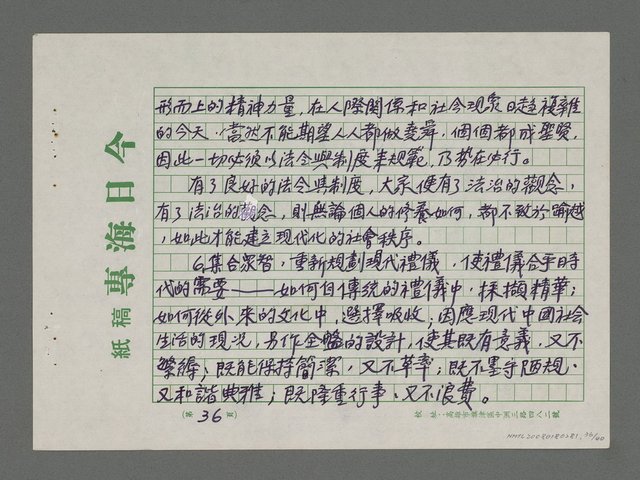 形而上的精神力量，在人際關係和社会現象日趨複雜
的今天，當然不能期望人人都做堯舜，個個都成聖賢，
因此一切必須以法令與制度來規範，乃勢在必行。
有了良好的法令與制度，大家便有了法治的觀念，
有了法治的觀念，則無論個人的修養如何，都不致於踰越
，如此才能建立現代化的社會秩序。
6.集合眾智，重新規劃現代禮儀，使禮儀合乎時
代的需要——如何自傳統的禮儀中，採擷精華；
如何從外來的文化中，選擇吸收；因應現代中國社会
生活的現況，另作全盤的設計，使其既有意義，又不
繁縟；既能保持簡潔，又不草率；既不墨守陋規，
又和諧典雅；既隆重行事，又不浪費。
今日海專
稿紙
(第36頁)
校址：高雄市旗津區中洲三路四八二號
NMTL20080180281, 36/40